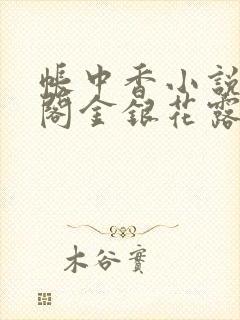 帳中香小說
閣金銀花露
木谷實